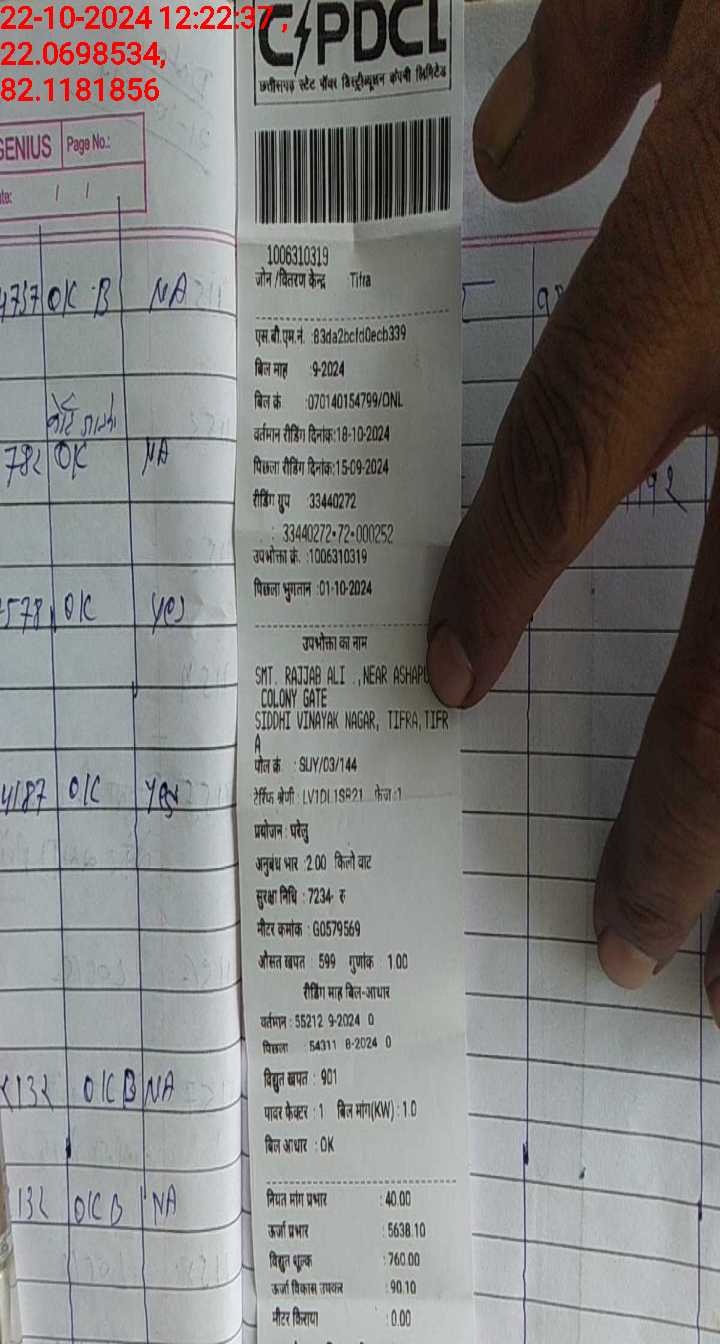 22-10-2024 12:22:37,
22.0698534,
82.1181856
CSPDCL
छत्तीसगढ़ स्टेट पॉवर डिस्ट्रीब्यूशन कंपनी लिमिटेड
GENIUS Page No.:
1006310319
जोन /वितरण केन्द्र Tifra
एस.बी.एम.नं. :83da2bcfd0ecb339
बिल माह :9-2024
बिल क्रं :070140154799/ONL
वर्तमान रीडिंग दिनांक:18-10-2024
पिछला रीडिंग दिनांक:15-09-2024
रीडिंग ग्रुप 33440272
: 33440272-72-000252
उपभोक्ता क्रं. :1006310319
पिछला भुगतान :01-10-2024
उपभोक्ता का नाम
SMT. RAJJAB ALI .,NEAR ASHAPU
COLONY GATE
SIDDHI VINAYAK NAGAR, TIFRA,TIFR
A
पोल क्रं : SUY/03/144
टेरिफ श्रेणी : LV1DL1SB21 फेज :1
प्रयोजन : घरेलु
अनुबंध भार :2.00 किलो वाट
सुरक्षा निधि : 7234- रु
मीटर क्रमांक : G0579569
औसत खपत 599 गुणांक 1.00
रीडिंग माह बिल-आधार
वर्तमान : 55212 9-2024 0
पिछला : 54311 8-2024 0
विद्युत खपत : 901
पावर फेक्टर : 1 बिल मांग(KW) : 1.0
बिल आधार : OK
नियत मांग प्रभार : 40.00
ऊर्जा प्रभार : 5638.10
विद्युत शुल्क : 760.00
ऊर्जा विकास उपकर : 90.10
मीटर किराया : 0.00
4737 OK B NA
782 OK NA
578 OK Yes
4187 OK Yes
2132 OK B NA
132 OK B NA